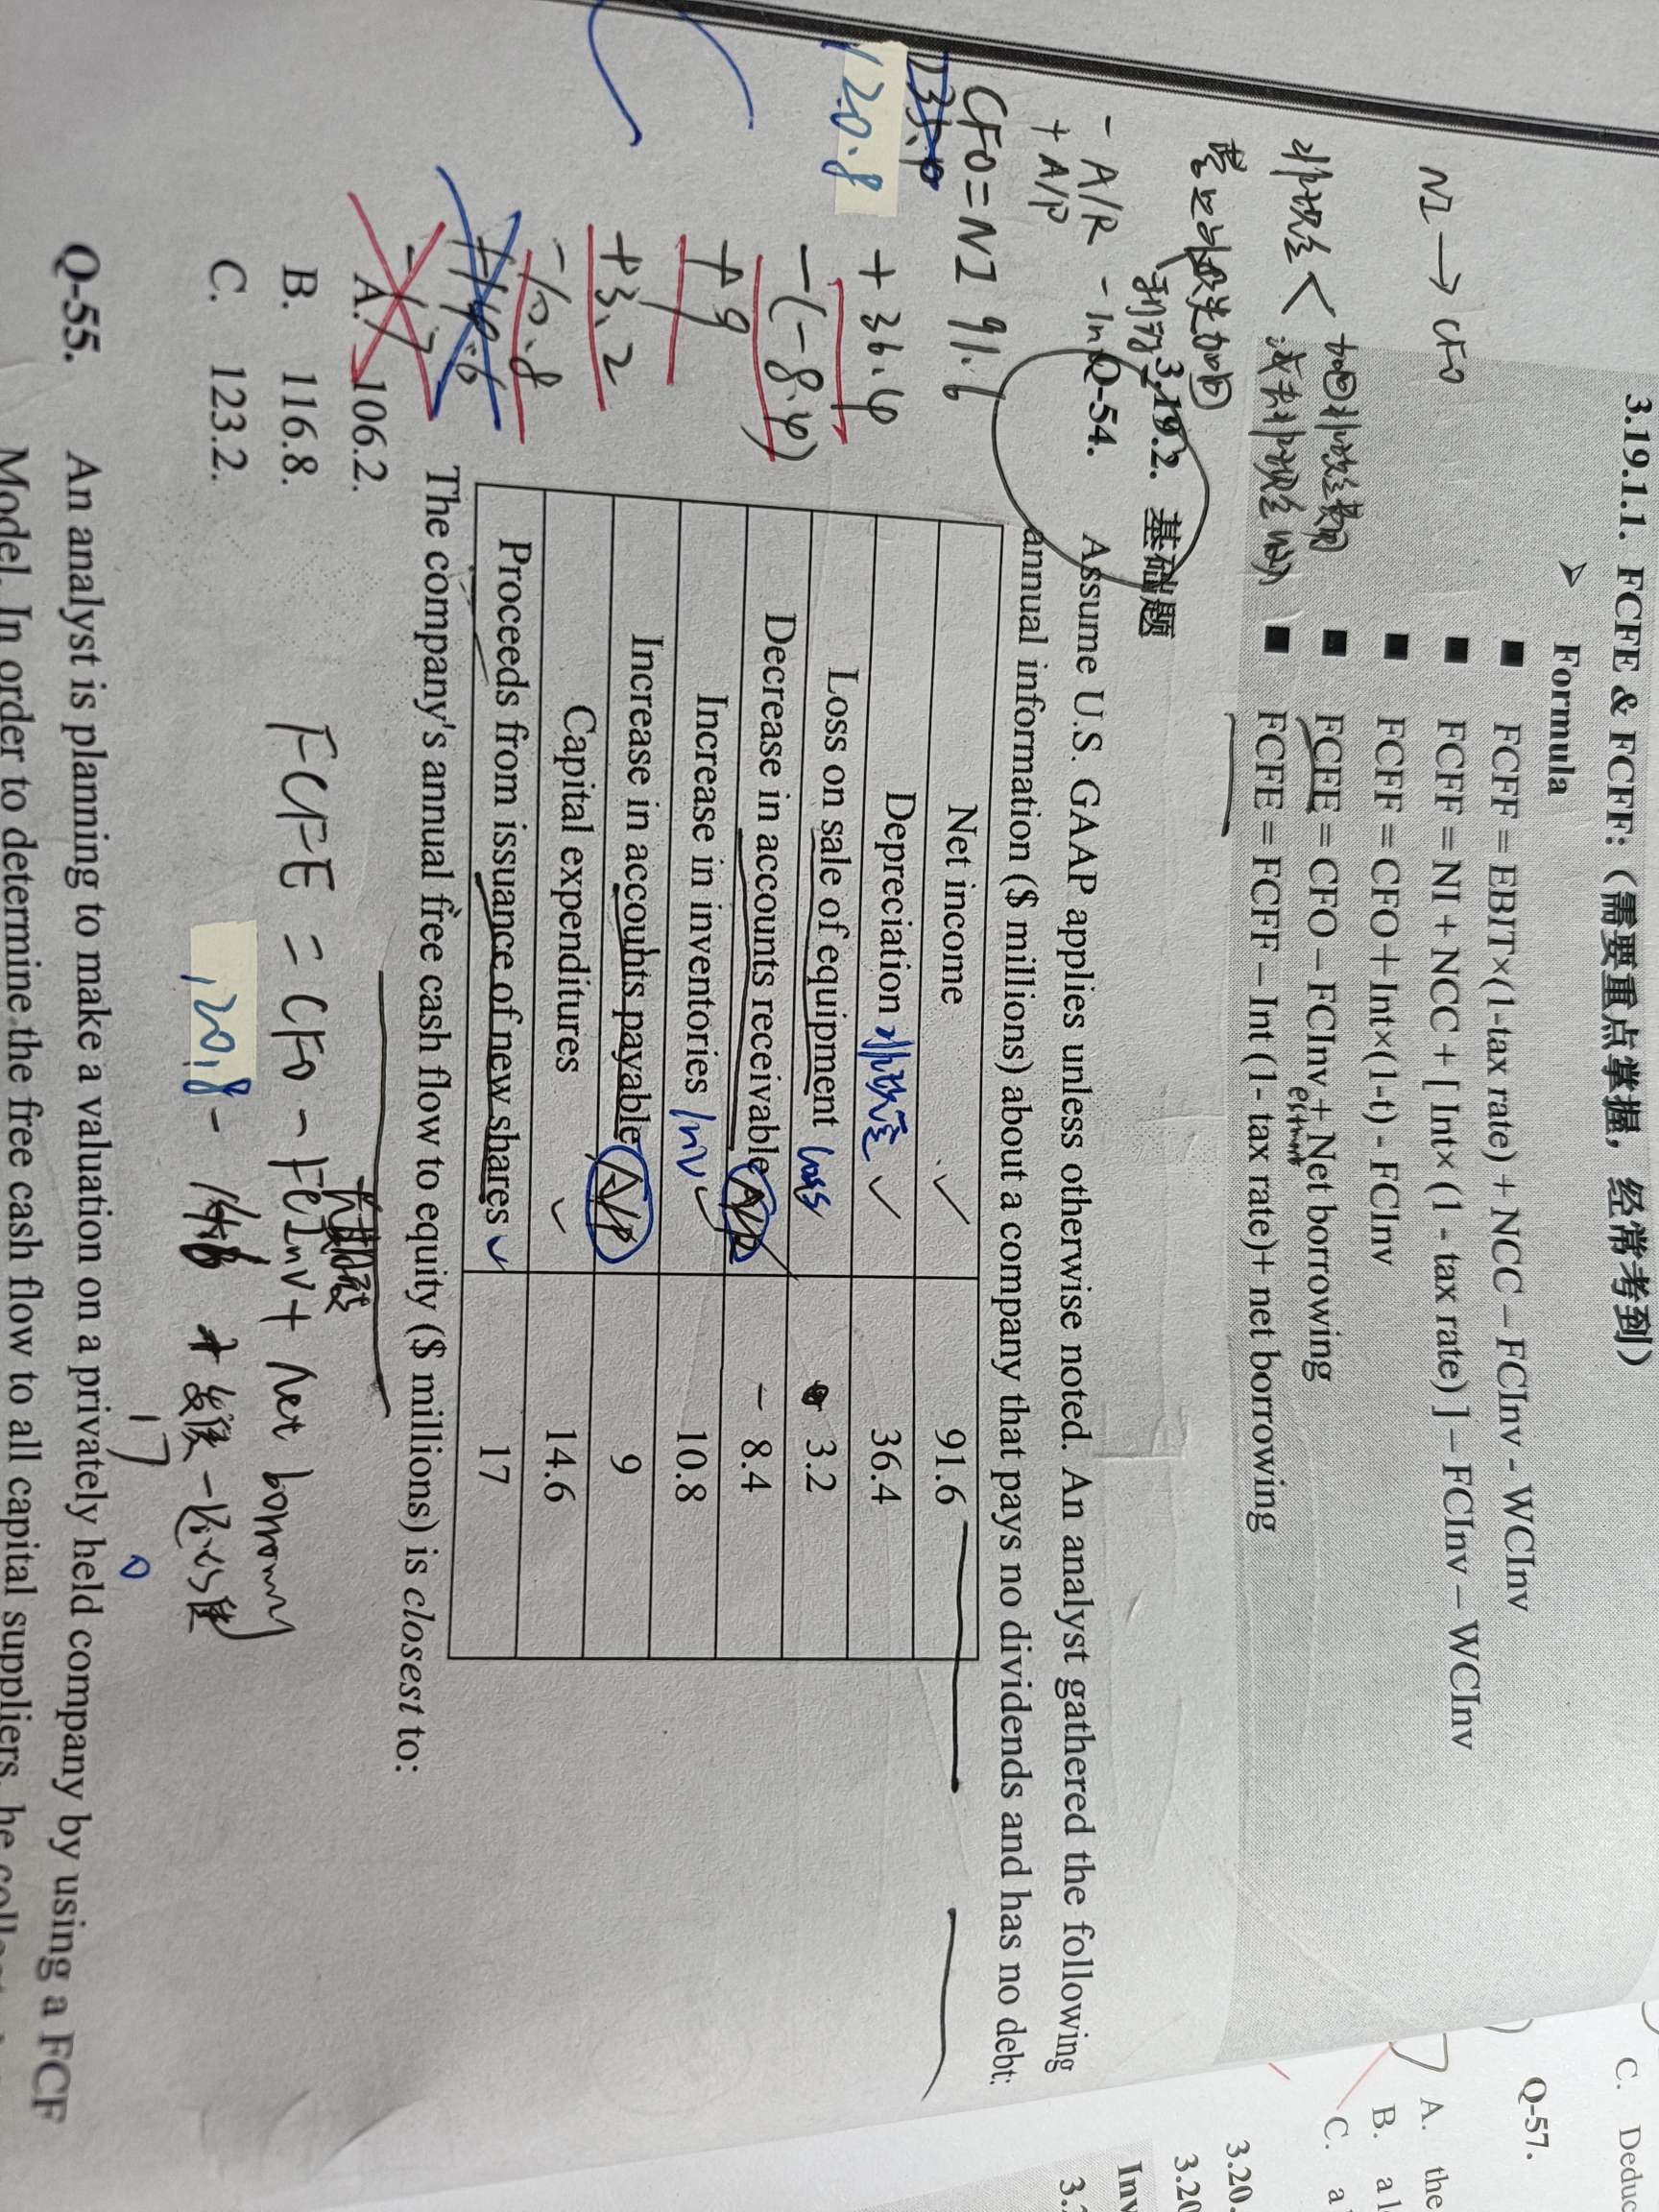 3.19.1.1. FCFE & FCFF:（需要重点掌握，经常考到）
➤ Formula
■ FCFF = EBIT×(1-tax rate) + NCC – FCInv - WCInv
■ FCFF = NI + NCC + [ Int× (1 - tax rate) ] – FCInv – WCInv
■ FCFF = CFO + Int×(1-t) - FCInv
■ FCFE = CFO – FCInv + Net borrowing
■ FCFE = FCFF – Int (1- tax rate)+ net borrowing
NI → CFO
非现金
加回非现金费用
减去非现金
加回
3.19.2. 基础题
- A/R
+ A/P
Q-54. Assume U.S. GAAP applies unless otherwise noted. An analyst gathered the following
annual information ($ millions) about a company that pays no dividends and has no debt:
CFO = NI 91.6
+ 36.4
-(-8.4)
+ 9
+3.2
-10.8
120.8
Net income 91.6
Depreciation 非现金 36.4
Loss on sale of equipment loss 3.2
Decrease in accounts receivable - 8.4
Increase in inventories Inv 10.8
Increase in accounts payable A/P 9
Capital expenditures 14.6
Proceeds from issuance of new shares 17
The company's annual free cash flow to equity ($ millions) is closest to:
A. 106.2.
B. 116.8.
C. 123.2.
FCFE = CFO - FCInv + net borrowing
120.8 - 14.6
17 0
Q-55. An analyst is planning to make a valuation on a privately held company by using a FCF
Model. In order to determine the free cash flow to all capital suppliers, he
C. Deduc
Q-57.
A. the
B. a l
C. a
3.20.
3.20
Inv
3.